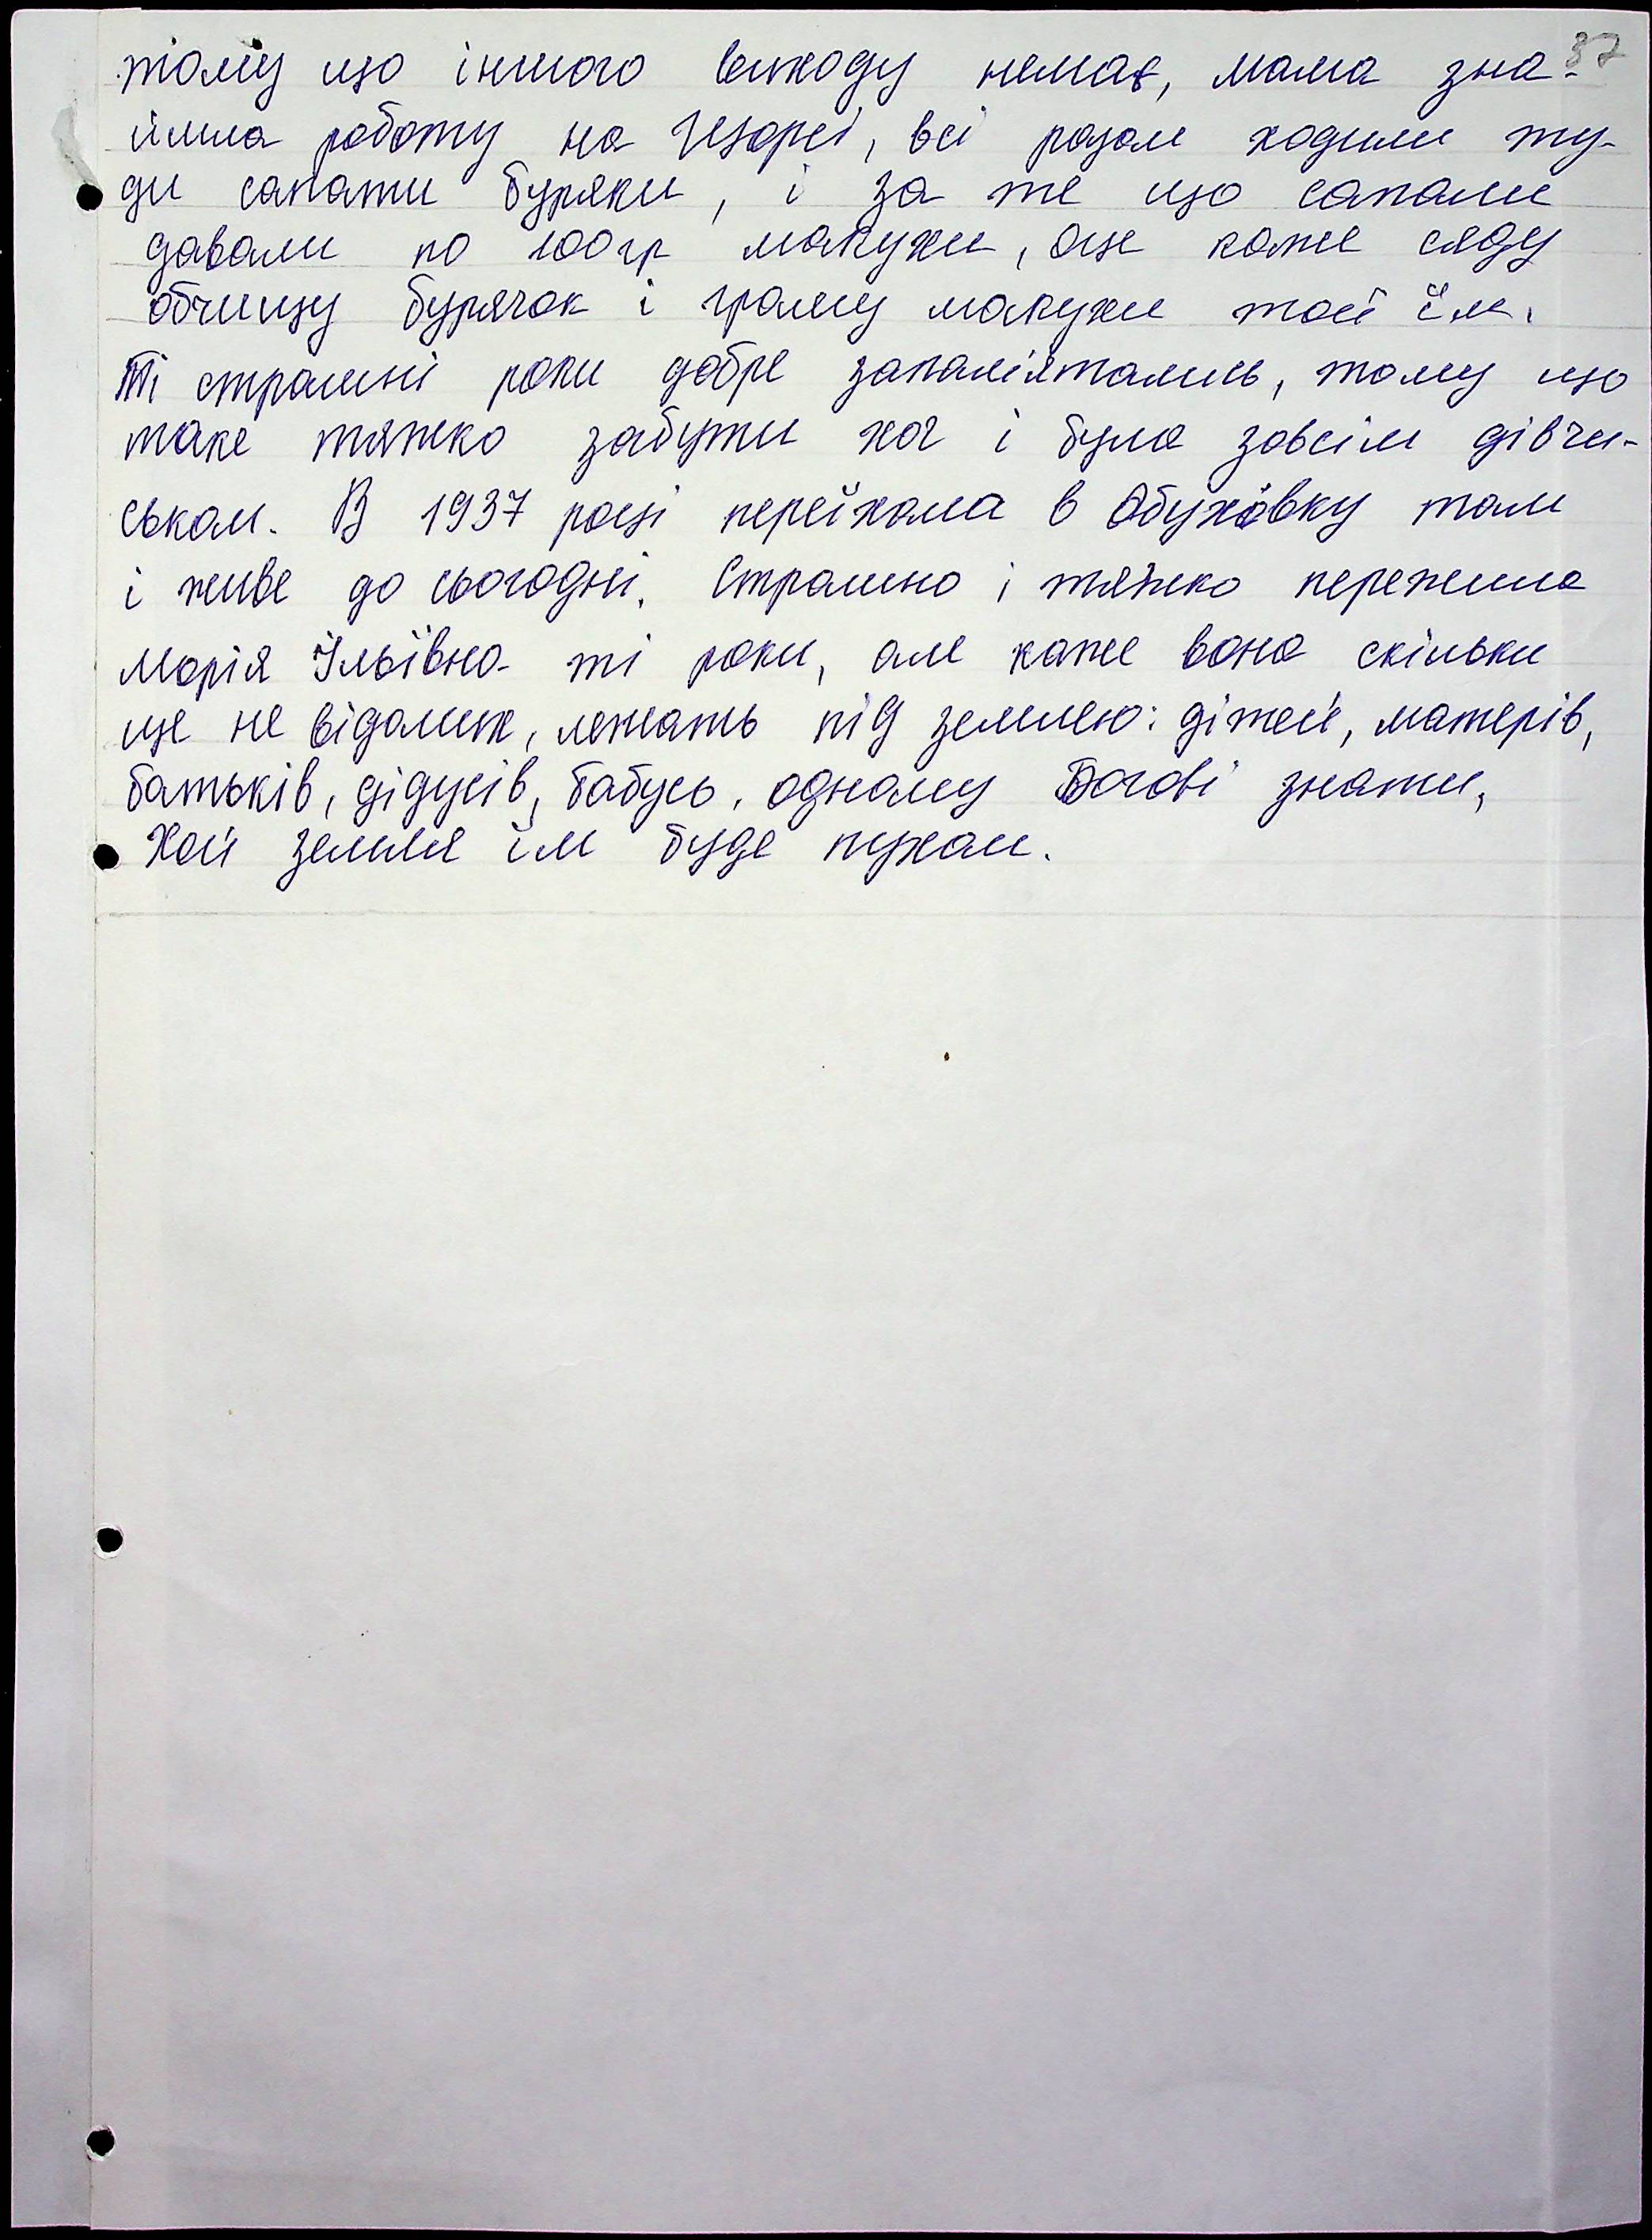 37
тому що іншого виходу немає, мама зна-
йшла роботу на , всі разом ходили ту-
ди сапати буряки, і за те що сапали
давали по 100 гр макухи, оце каже сяду
обчищу бурячок і грамму макухи той їм.
Ті страшні роки добре запам'ятались, тому що
таке тяжко забути хоч і була зовсім дівчи-
ськом. В 1937 році переїхала в Обухівку там
і живе до сьогодні. Страшно і тяжко пережила
Марія Ільївна ті роки, але каже вона скільки
ще не відомих, лежать під землею: дітей, матерів,
батьків, дідусів, бабусь, одному Богові знати,
Хай земля їм буде пухом.